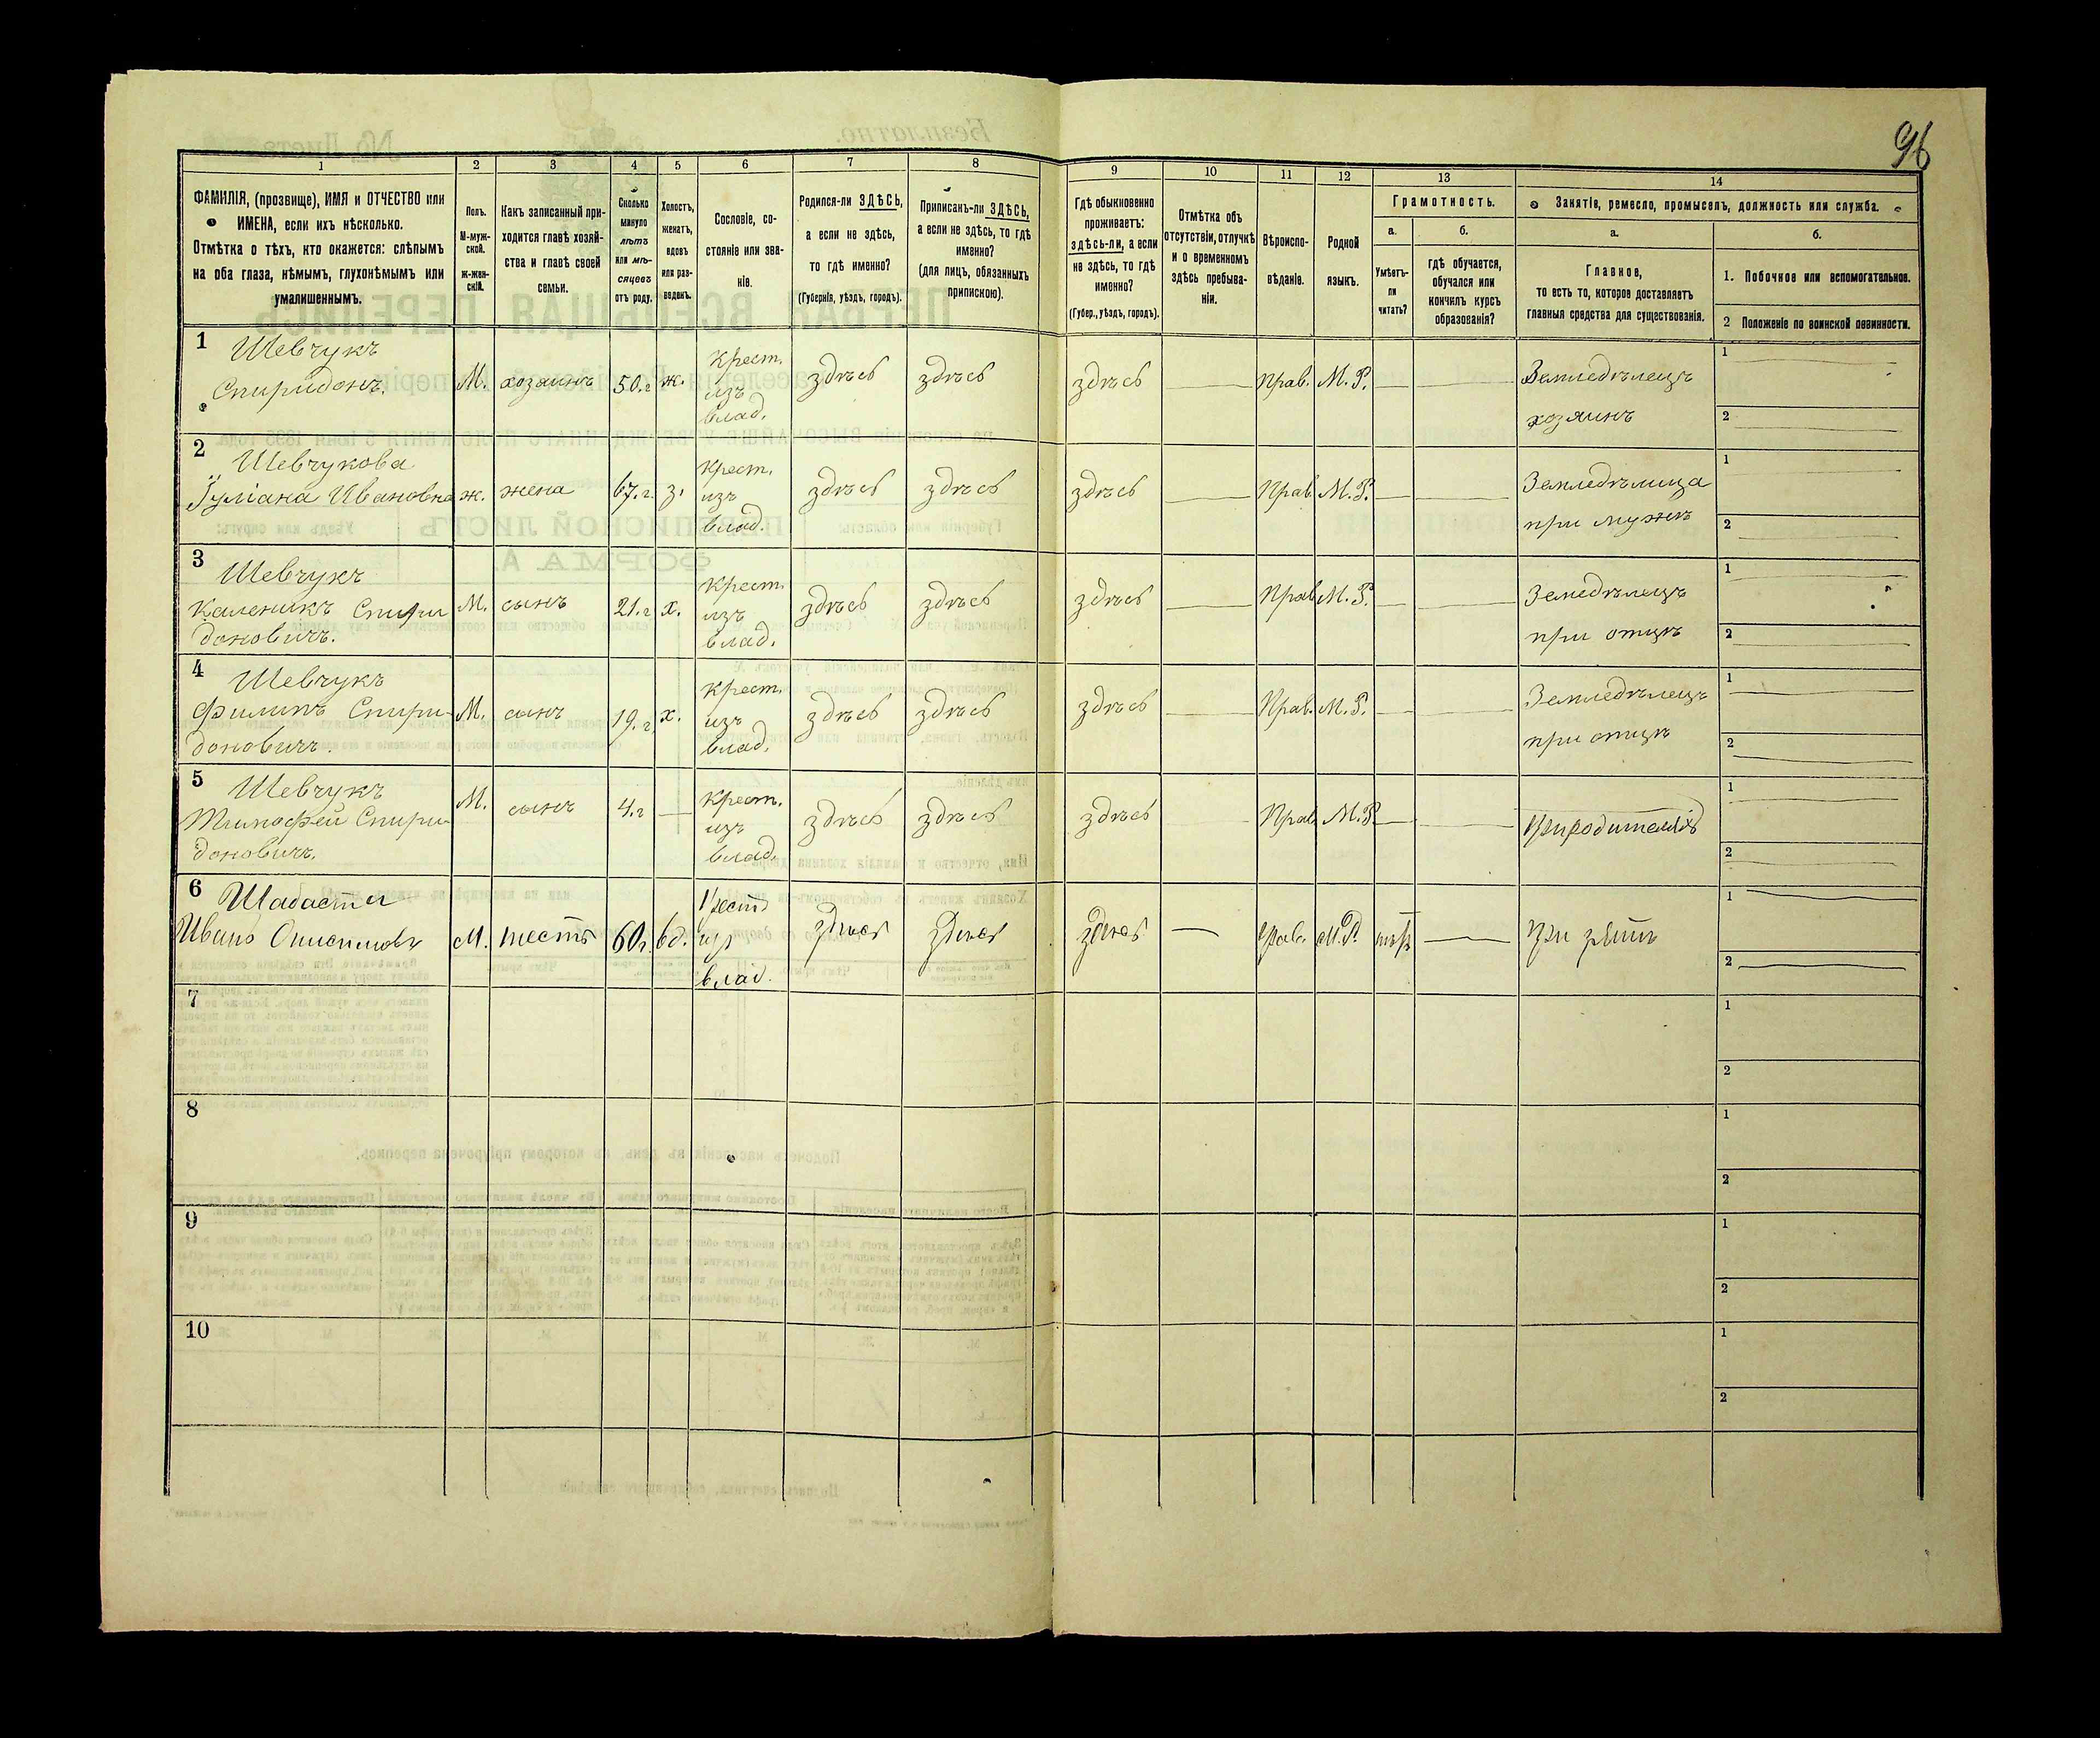 96
1 2 3 4 5 6 7 8 9 10 11 12 13 14
ФАМИЛІЯ, (прозвище), ИМЯ и ОТЧЕСТВО или
ИМЕНА, если ихъ нѣсколько.
Отмѣтка о тѣхъ, кто окажется: слѣпымъ
на оба глаза, нѣмымъ, глухонѣмымъ или
умалишеннымъ.
Полъ.
М-муж-
ской.
ж-жен-
скій.
Какъ записанный при-
ходится главѣ хозяй-
ства и главѣ своей
семьи.
Сколько
минуло
лѣтъ
или мѣ-
сяцевъ
отъ роду.
Холостъ,
женатъ,
вдовъ
или раз-
веденъ.
Сословіе, со-
стояніе или зва-
ніе.
Родился-ли ЗДѢСЬ,
а если не здѣсь,
то гдѣ именно?
(Губернія, уѣздъ, городъ).
Приписанъ-ли ЗДѢСЬ,
а если не здѣсь, то гдѣ
именно?
(для лицъ, обязанныхъ
припискою).
Гдѣ обыкновенно
проживаетъ:
здѣсь-ли, а если
не здѣсь, то гдѣ
именно?
(Губер., уѣздъ, городъ).
Отмѣтка объ
отсутствіи, отлучкѣ
и о временномъ
здѣсь пребыва-
ніи.
Вѣроиспо-
вѣданіе.
Родной
языкъ.
Грамотность.
а.
Умѣетъ-
ли
читать?
б.
гдѣ обучается,
обучался или
кончилъ курсъ
образованія?
Занятіе, ремесло, промыселъ, должность или служба.
а.
Главное,
то есть то, которое доставляетъ
главныя средства для существованія.
б.
1. Побочное или вспомогательное.
2 Положеніе по воинской повинности.
1 Шевчукъ
Спиридонъ.
М.
хозяинъ
50.г
ж.
Крест.
изъ
влад.
здѣсь
здѣсь
здѣсь
Прав.
М.Р.
Земледѣлецъ
хозяинъ
1
2
2 Шевчукова
Іуліана Ивановна
ж.
жена
67.г.
з.
Крест.
изъ
влад.
здѣсь
здѣсь
здѣсь
Прав.
М.Р.
Земледѣлица
при мужѣ
1
2
3 Шевчукъ
Каленикъ Спири
доновичъ.
М.
сынъ
21.г
х.
Крест.
изъ
влад.
здѣсь
здѣсь
здѣсь
Прав
М.Р.
Земедѣлецъ
при отцѣ
1
2
4 Шевчукъ
Филипъ Спири-
доновичъ.
М.
сынъ
19.г.
х.
Крест.
изъ
влад.
здѣсь
здѣсь
здѣсь
Прав.
М.Р.
Земледѣлецъ
при отцѣ
1
2
5 Шевчукъ
Тимофей Спири-
доновичъ.
М.
сынъ
4.г
Крест.
изъ
влад.
здѣсь
здѣсь
здѣсь
Прав.
М.Р.
При родителяхъ
1
2
6
Иванъ
М.
тесть
60г.
вд.
Крест
изъ
влад.
здѣсь
здѣсь
здѣсь
Прав.
М.Р.
При зятѣ
1
2
7
1
2
8
1
2
9
1
2
10
1
2